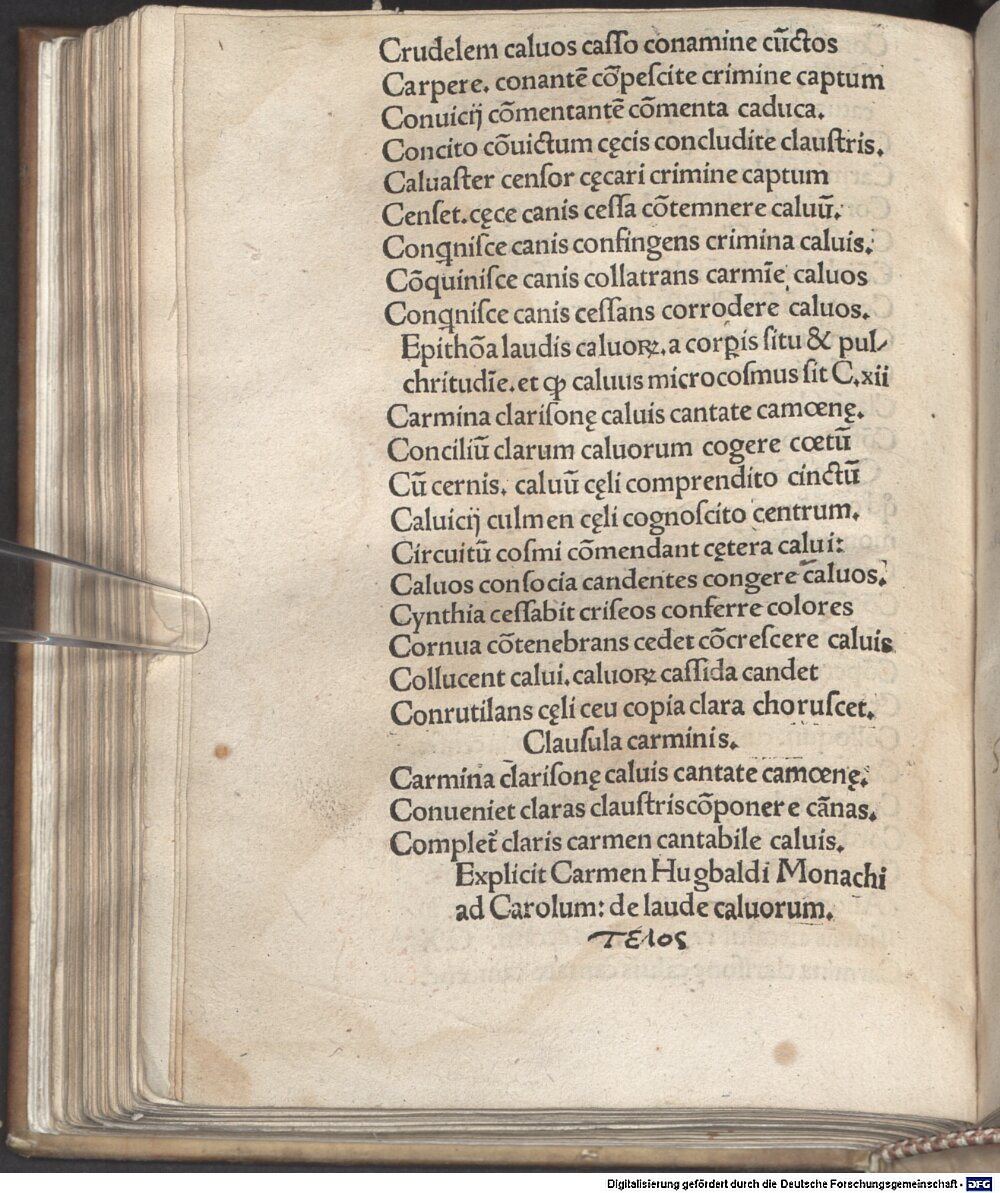 Crudelem caluos caſſo conamine cũctos
Carpere. conantẽ cõpeſcite crimine captum
Conuicij cõmentantẽ cõmenta caduca.
Concito cõuictum cęcis concludite clauſtris.
Caluaſter cenſor cęcari crimine captum
Cenſet.cęce canis ceſſa cõtemnere caluũ.
Conꝗniſce canis confingens crimina caluis.
Cõquiniſce canis collatrans carmĩe caluos
Conꝗniſce canis ceſſans corrodere caluos.
Epithõa laudis caluoꝝ. a corꝑis ſitu & pul-
chritudĩe. et ꝙ caluus microcoſmus ſit C.xii
Carmina clariſonę caluis cantate camœnę.
Conciliũ clarum caluorum cogere cœtũ
Cũ cernis. caluũ cęli comprendito cinctũ
Caluicij culmen cęli cognoſcito centrum.
Circuitũ coſmi cõmendant cętera calui:
Caluos conſocia candentes congere caluos.
Cynthia ceſſabit criſeos conferre colores
Cornua cõtenebrans cedet cõcreſcere caluis
Collucent calui. caluoꝝ caſſida candet
Conrutilans cęli ceu copia clara choruſcet.
Clauſula carminis.
Carmina clariſonę caluis cantate camœnę.
Conueniet claras clauſtris cõponere cãnas.
Complet᷑ claris carmen cantabile caluis.
Explicit Carmen Hugbaldi Monachi
ad Carolum: de laude caluorum.
τέλος
Digitalisierung gefördert durch die Deutsche Forschungsgemeinschaft - DFG